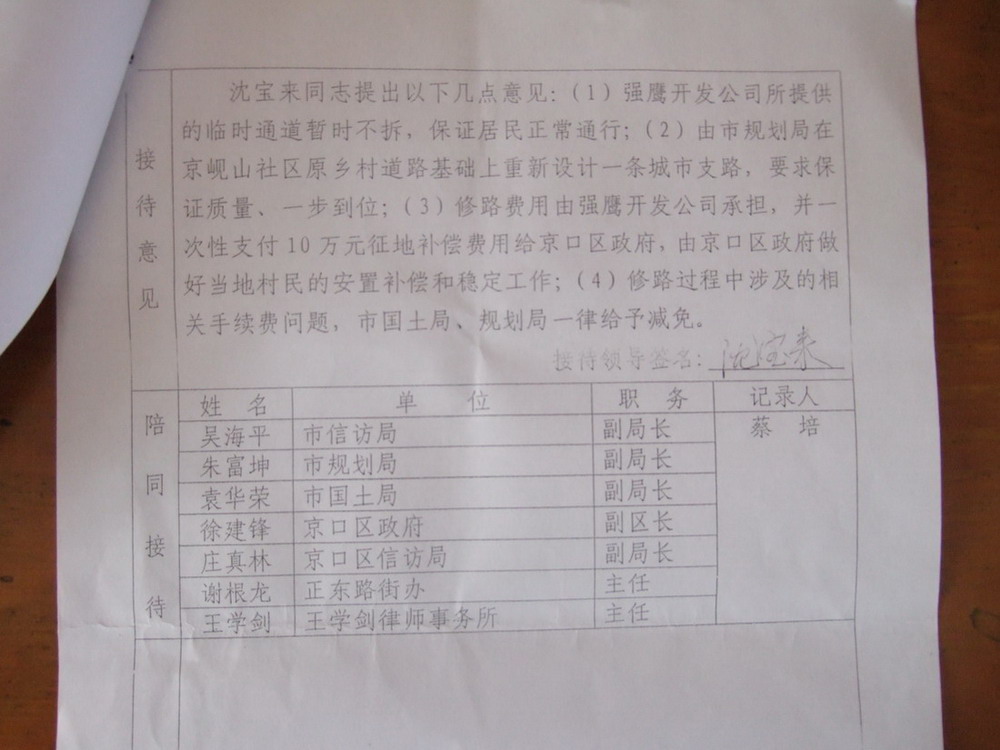 接待意见
沈宝来同志提出以下几点意见：（1）强鹰开发公司所提供
的临时通道暂时不拆，保证居民正常通行；（2）由市规划局在
京岘山社区原乡村道路基础上重新设计一条城市支路，要求保
证质量、一步到位；（3）修路费用由强鹰开发公司承担，并一
次性支付10万元征地补偿费用给京口区政府，由京口区政府做
好当地村民的安置补偿和稳定工作；（4）修路过程中涉及的相
关手续费问题，市国土局、规划局一律给予减免。
接待领导签名：沈宝来
陪同接待
姓 名 单 位 职 务 记录人
吴海平 市信访局 副局长 蔡 培
朱富坤 市规划局 副局长
袁华荣 市国土局 副局长
徐建锋 京口区政府 副区长
庄真林 京口区信访局 副局长
谢根龙 正东路街办 主任
王学剑 王学剑律师事务所 主任